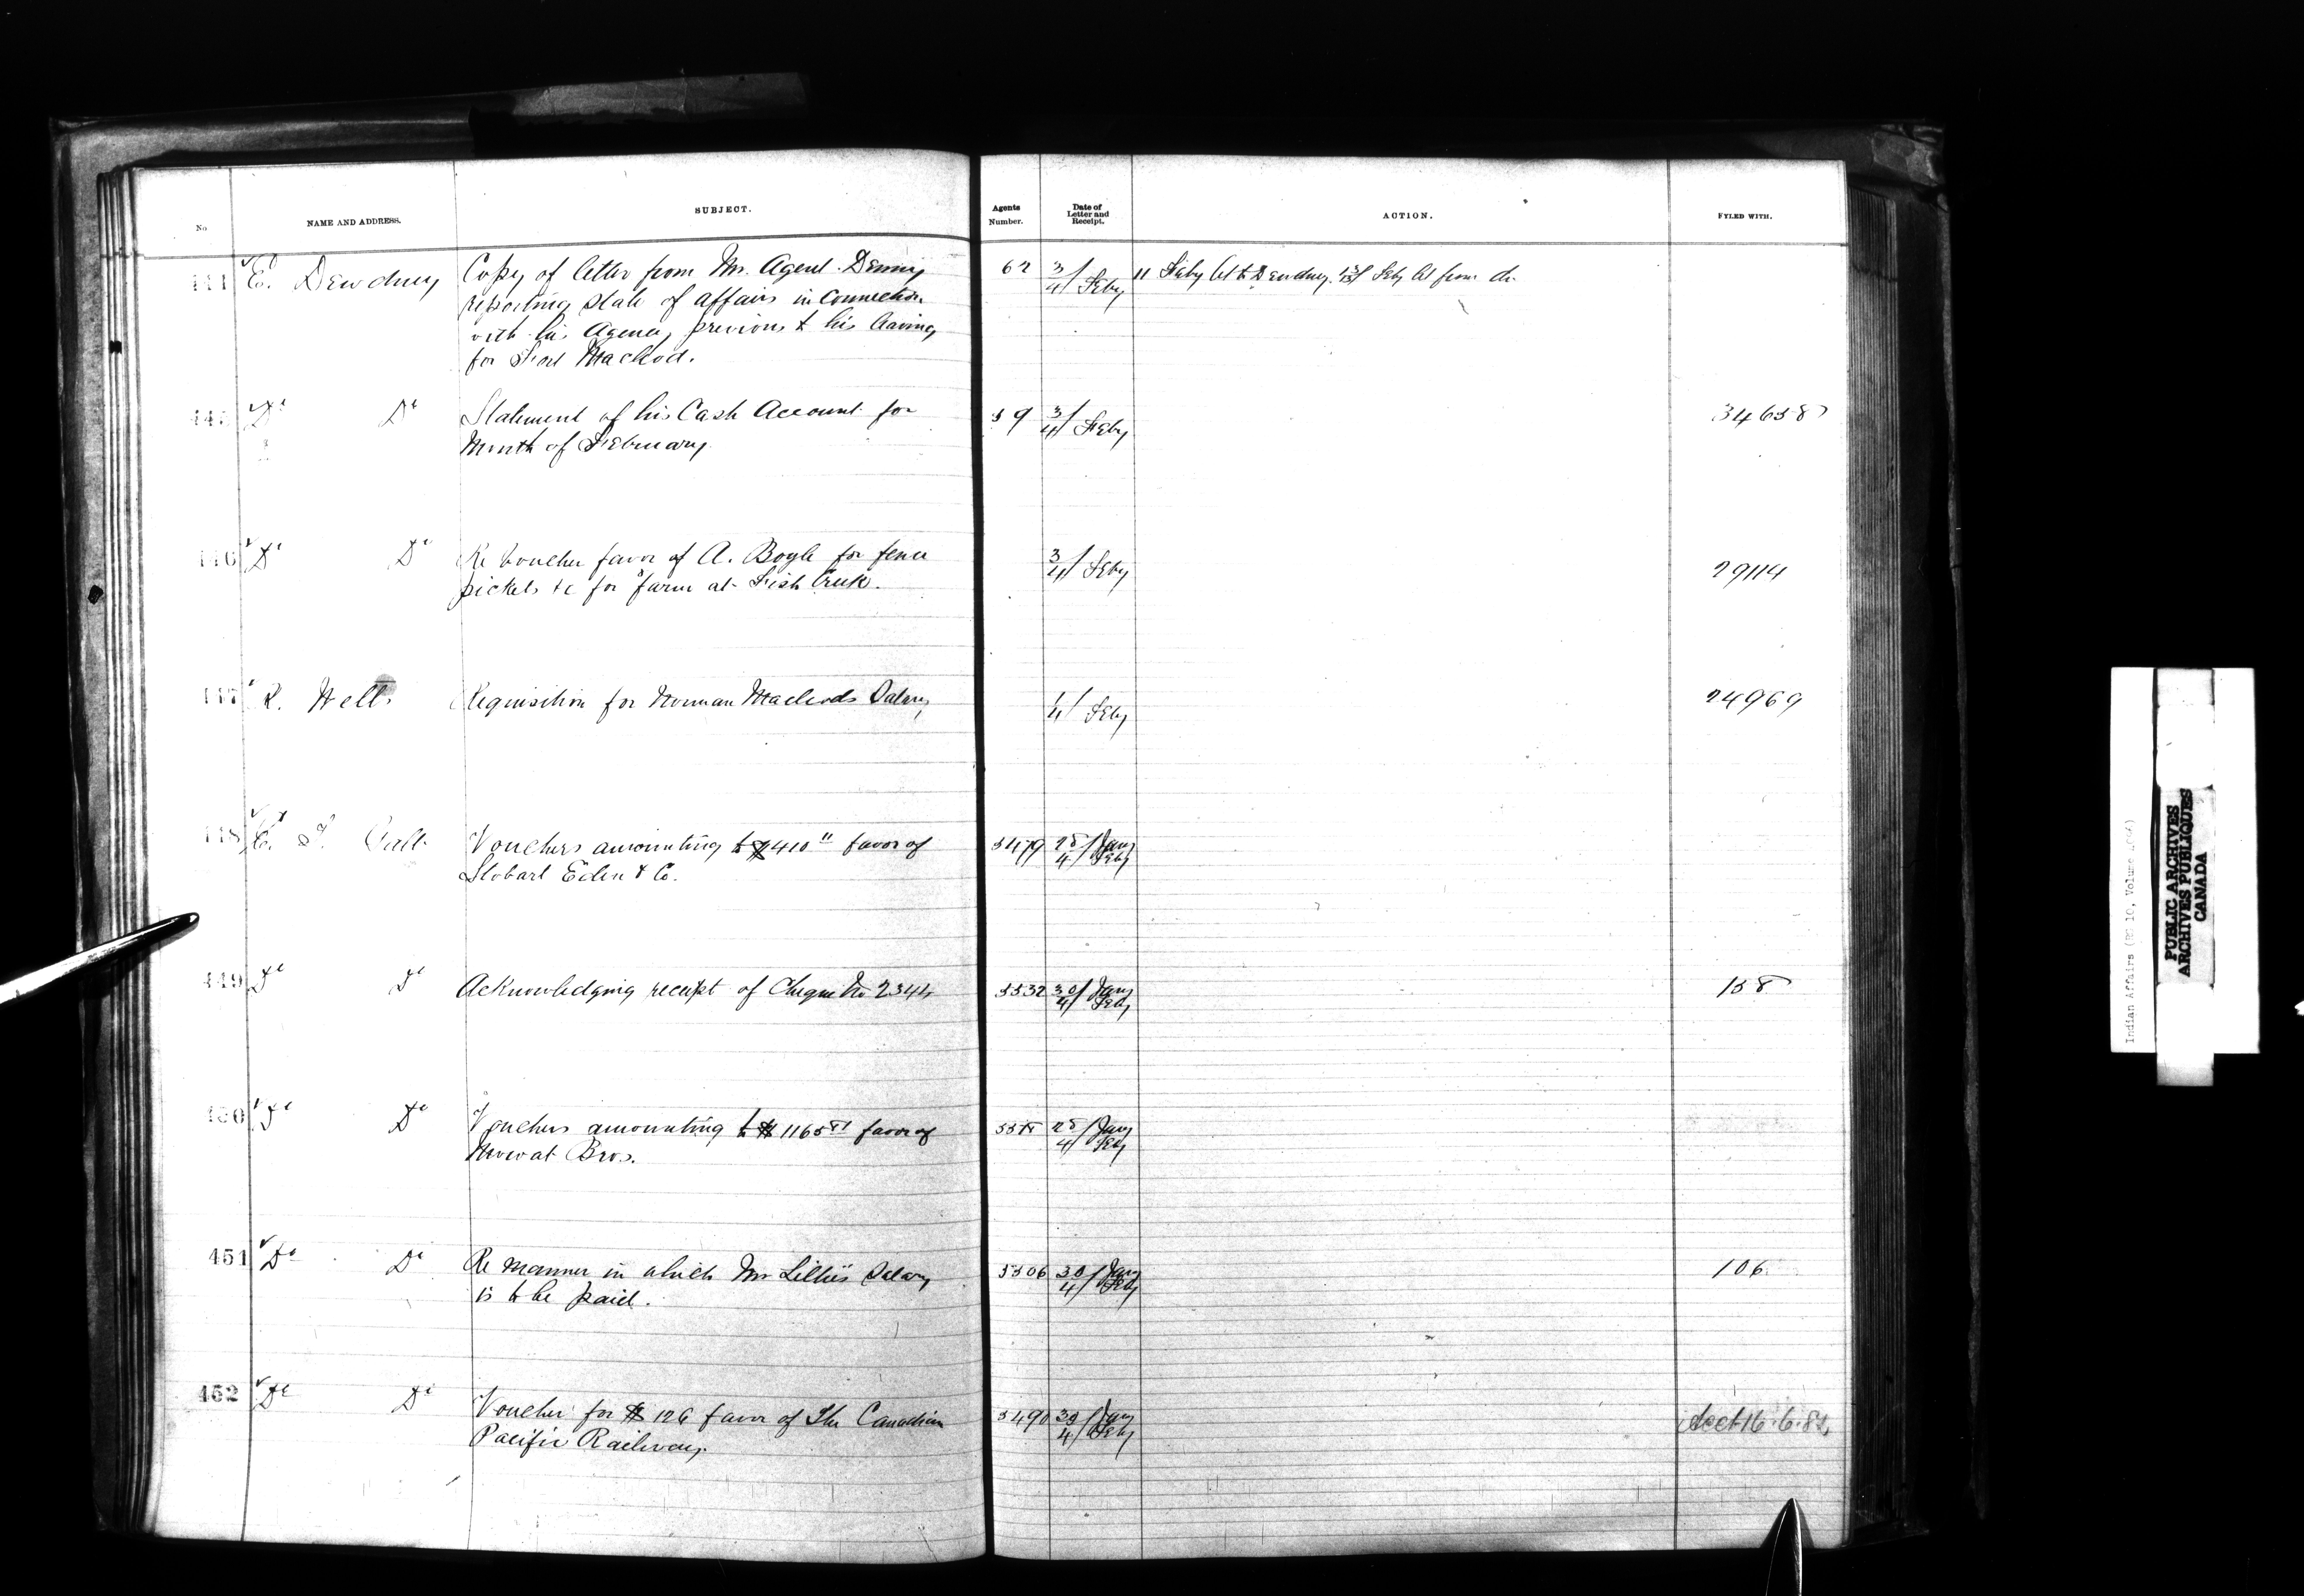 No NAME AND ADDRESS. SUBJECT. Agents Number. Date of Letter and Receipt. ACTION. FYLED WITH.
E. Dewdney Copy of letter from Mr. Agent Denny 62 3/4 Feby 11 Feby let to Dewdney. 13/18 Feby let from do
reporting state of affairs in connection
with his Agency previous to his leaving
for Fort Macleod.
445 Do Do Statement of his Cash Account for 59 3/4 Feby 34658
Month of February
446 Do Do Re Voucher favor of A. Boyle for fence 3/4 Feby 29114
pickets &c for farm at Fish Creek.
447 Wells Requisition for Norman Macleods Salary 4/4 Feby 24969
448 E. T. Galt Vouchers amounting to $410 11 favor of 5479 28/4 Jany Feby
Stobart Eden & Co.
449 Do Do Acknowledging receipt of Cheque No 2344 5532 30/4 Jany Feby 158
450 Do Do Vouchers amounting to $1165 favor of 28/4 Jany Feby
Mowat Bros.
451 Do Do Re manner in which Mr Lillies Salary 5506 30/4 Jany Feby 106
is to be paid.
452 Do Do Voucher for $126 favor of The Canadian 5490 30/4 Jany Feby Acct 16.6.84
Pacific Railway.
Indian Affairs (RG 10, Volume
PUBLIC ARCHIVES
ARCHIVES PUBLIQUES
CANADA